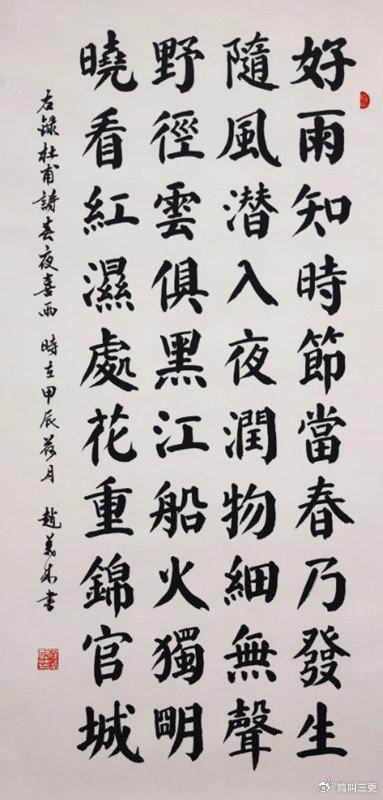 好雨知時節當春乃發生
隨風潜入夜潤物細無聲
野徑雲俱黑江船火獨明
曉看紅濕處花重錦官城
右録杜甫詩春夜喜雨 時在甲辰 月 趙 書
@鸡叫三更